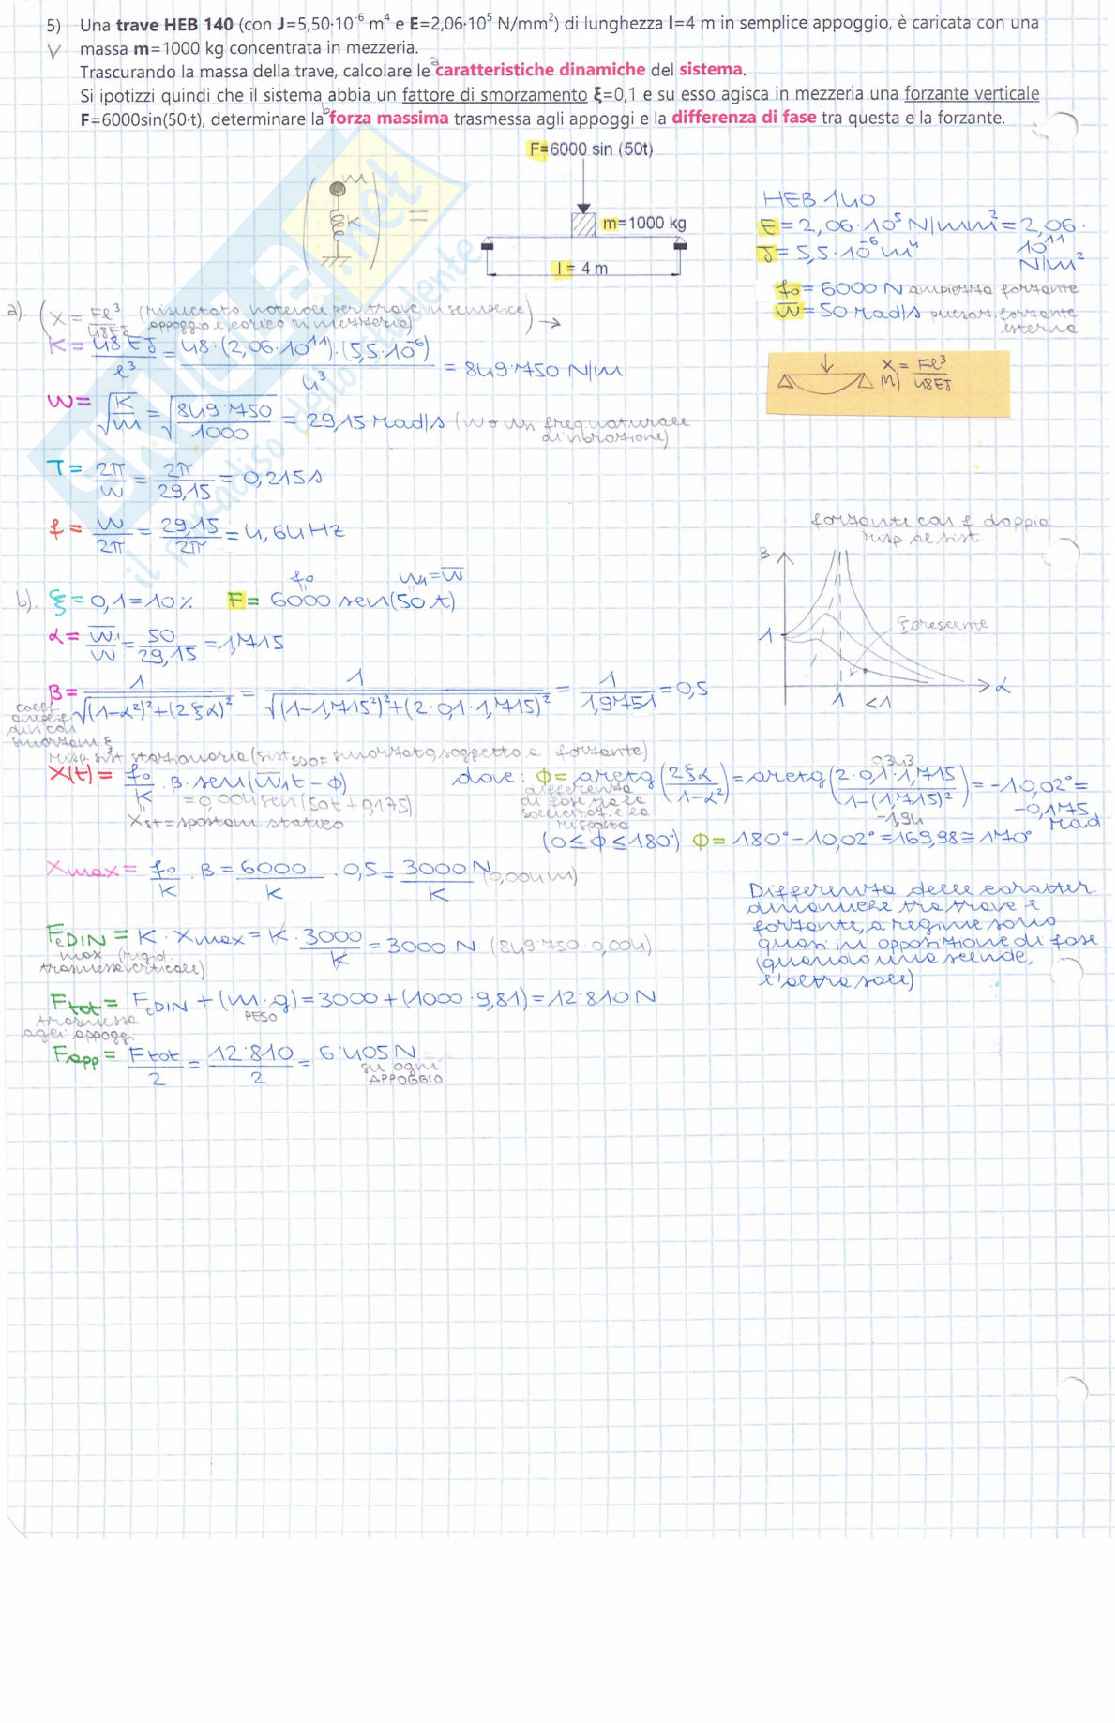 5) Una trave HEB 140 (con J=5,50·10⁻⁶ m⁴ e E=2,06·10⁵ N/mm²) di lunghezza l=4 m in semplice appoggio, è caricata con una
V massa m=1000 kg concentrata in mezzeria.
Trascurando la massa della trave, calcolare le a caratteristiche dinamiche del sistema.
Si ipotizzi quindi che il sistema abbia un fattore di smorzamento ξ=0,1 e su esso agisca in mezzeria una forzante verticale
F=6000sin(50·t), determinare la b forza massima trasmessa agli appoggi e la differenza di fase tra questa e la forzante.
F=6000 sin (50t)
m
K
=
m=1000 kg
l = 4 m
HEB 140
E = 2,06·10⁵ N/mm² = 2,06·
10¹¹
N/m²
J = 5,5·10⁻⁶ m⁴
f₀ = 6000 N ampiezza forzante
w̅ = 50 rad/s pulsaz. forzante
esterna
a) (x = Fl³/48EJ (risultato notevole per trave in semplice
appoggio e carico in mezzeria)) →
K = 48EJ/l³ = 48·(2,06·10¹¹)·(5,5·10⁻⁶)/4³ = 849·750 N/m
x = Fl³/48EJ
w = √K/m = √849·750/1000 = 29,15 rad/s (w₀ o wn freq naturale
di vibrazione)
T = 2π/w = 2π/29,15 = 0,215 s
f = w/2π = 29,15/2π = 4,64 Hz
forzante con f doppia
risp al sist
β
1
Forzante
1 <1
α
f₀ w₁=w̅
b). ξ = 0,1 = 10% F = 6000 sen(50t)
α = w̅₁/w = 50/29,15 = 1,715
β = 1/√(1-α²)²+(2ξα)² = 1/√(1-1,715²)²+(2·0,1·1,715)² = 1/1,9751 = 0,5
coeff
amplif
din con
smorzam. ξ
risp. sist stazionaria (sist SDOF smorzato soggetto a forzante)
x(t) = f₀/K · β·sen(w̅₁t-φ) dove: φ = arctg(2ξα/1-α²) = arctg(2·0,1·1,715/1-(1,715)²) = -10,02° =
-0,175
rad
0,343
-1,94
= 0,004 sen(50t+0,175)
xst = spostam statico
differenza
di fase tra le
sollecitaz. e la
risposta
(0≤φ≤180°) φ = 180°-10,02° = 169,98 ≅ 170°
Xmax = f₀/K · β = 6000/K · 0,5 = 3000 N/K (0,004m)
Differenza delle caratter
dinamiche tra trave e
forzante, a regime sono
quasi in opposizione di fase
(quando una scende,
l'altra sale)
FeDIN = K · Xmax = K · 3000/K = 3000 N (849·750·0,004)
max (rigid.
trasmessa verticale)
Ftot = FeDIN + (m·g) = 3000+(1000·9,81) = 12·810 N
PESO
trasmessa
agli appogg.
Fapp = Ftot/2 = 12·810/2 = 6·405 N
su ogni
APPOGGIO